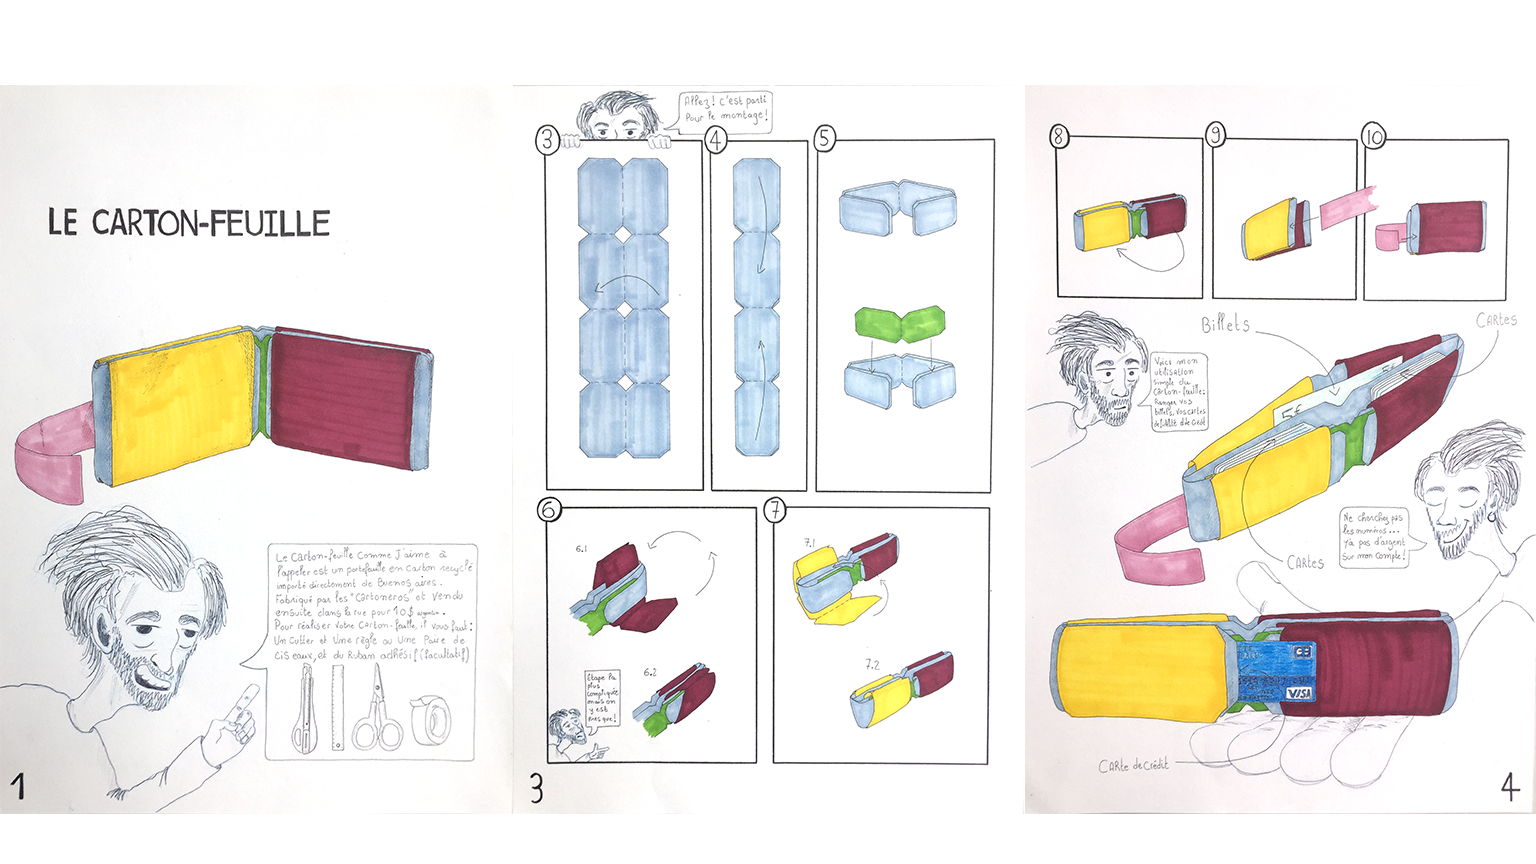 LE CARTON-FEUILLE
Le Carton-feuille comme J'aime à
l'appeler est un portefeuille en carton recyclé
importé directement de Buenos aires.
Fabriqué par les "Cartoneros" et Vendu
ensuite dans la rue pour 10$
Pour réaliser votre Carton-feuille, il vous faut:
Un Cutter et Une règle ou Une Paire de
Ciseaux, et du Ruban adhésif (facultatif)
1
Allez! c'est parti
Pour le montage!
3
4
5
6
6.1
6.2
Etape la
plus
compliquée
mais on
y est
presque!
7
7.1
7.2
3
8
9
10
Billets
CARTES
Voici mon
utilisation
simple du
Carton-feuille:
Ranger vos
billets, vos cartes
5€
Ne cherchez pas
les numéros...
y'a pas d'argent
sur mon compte!
CARTES
VISA
CARte de Crédit
4